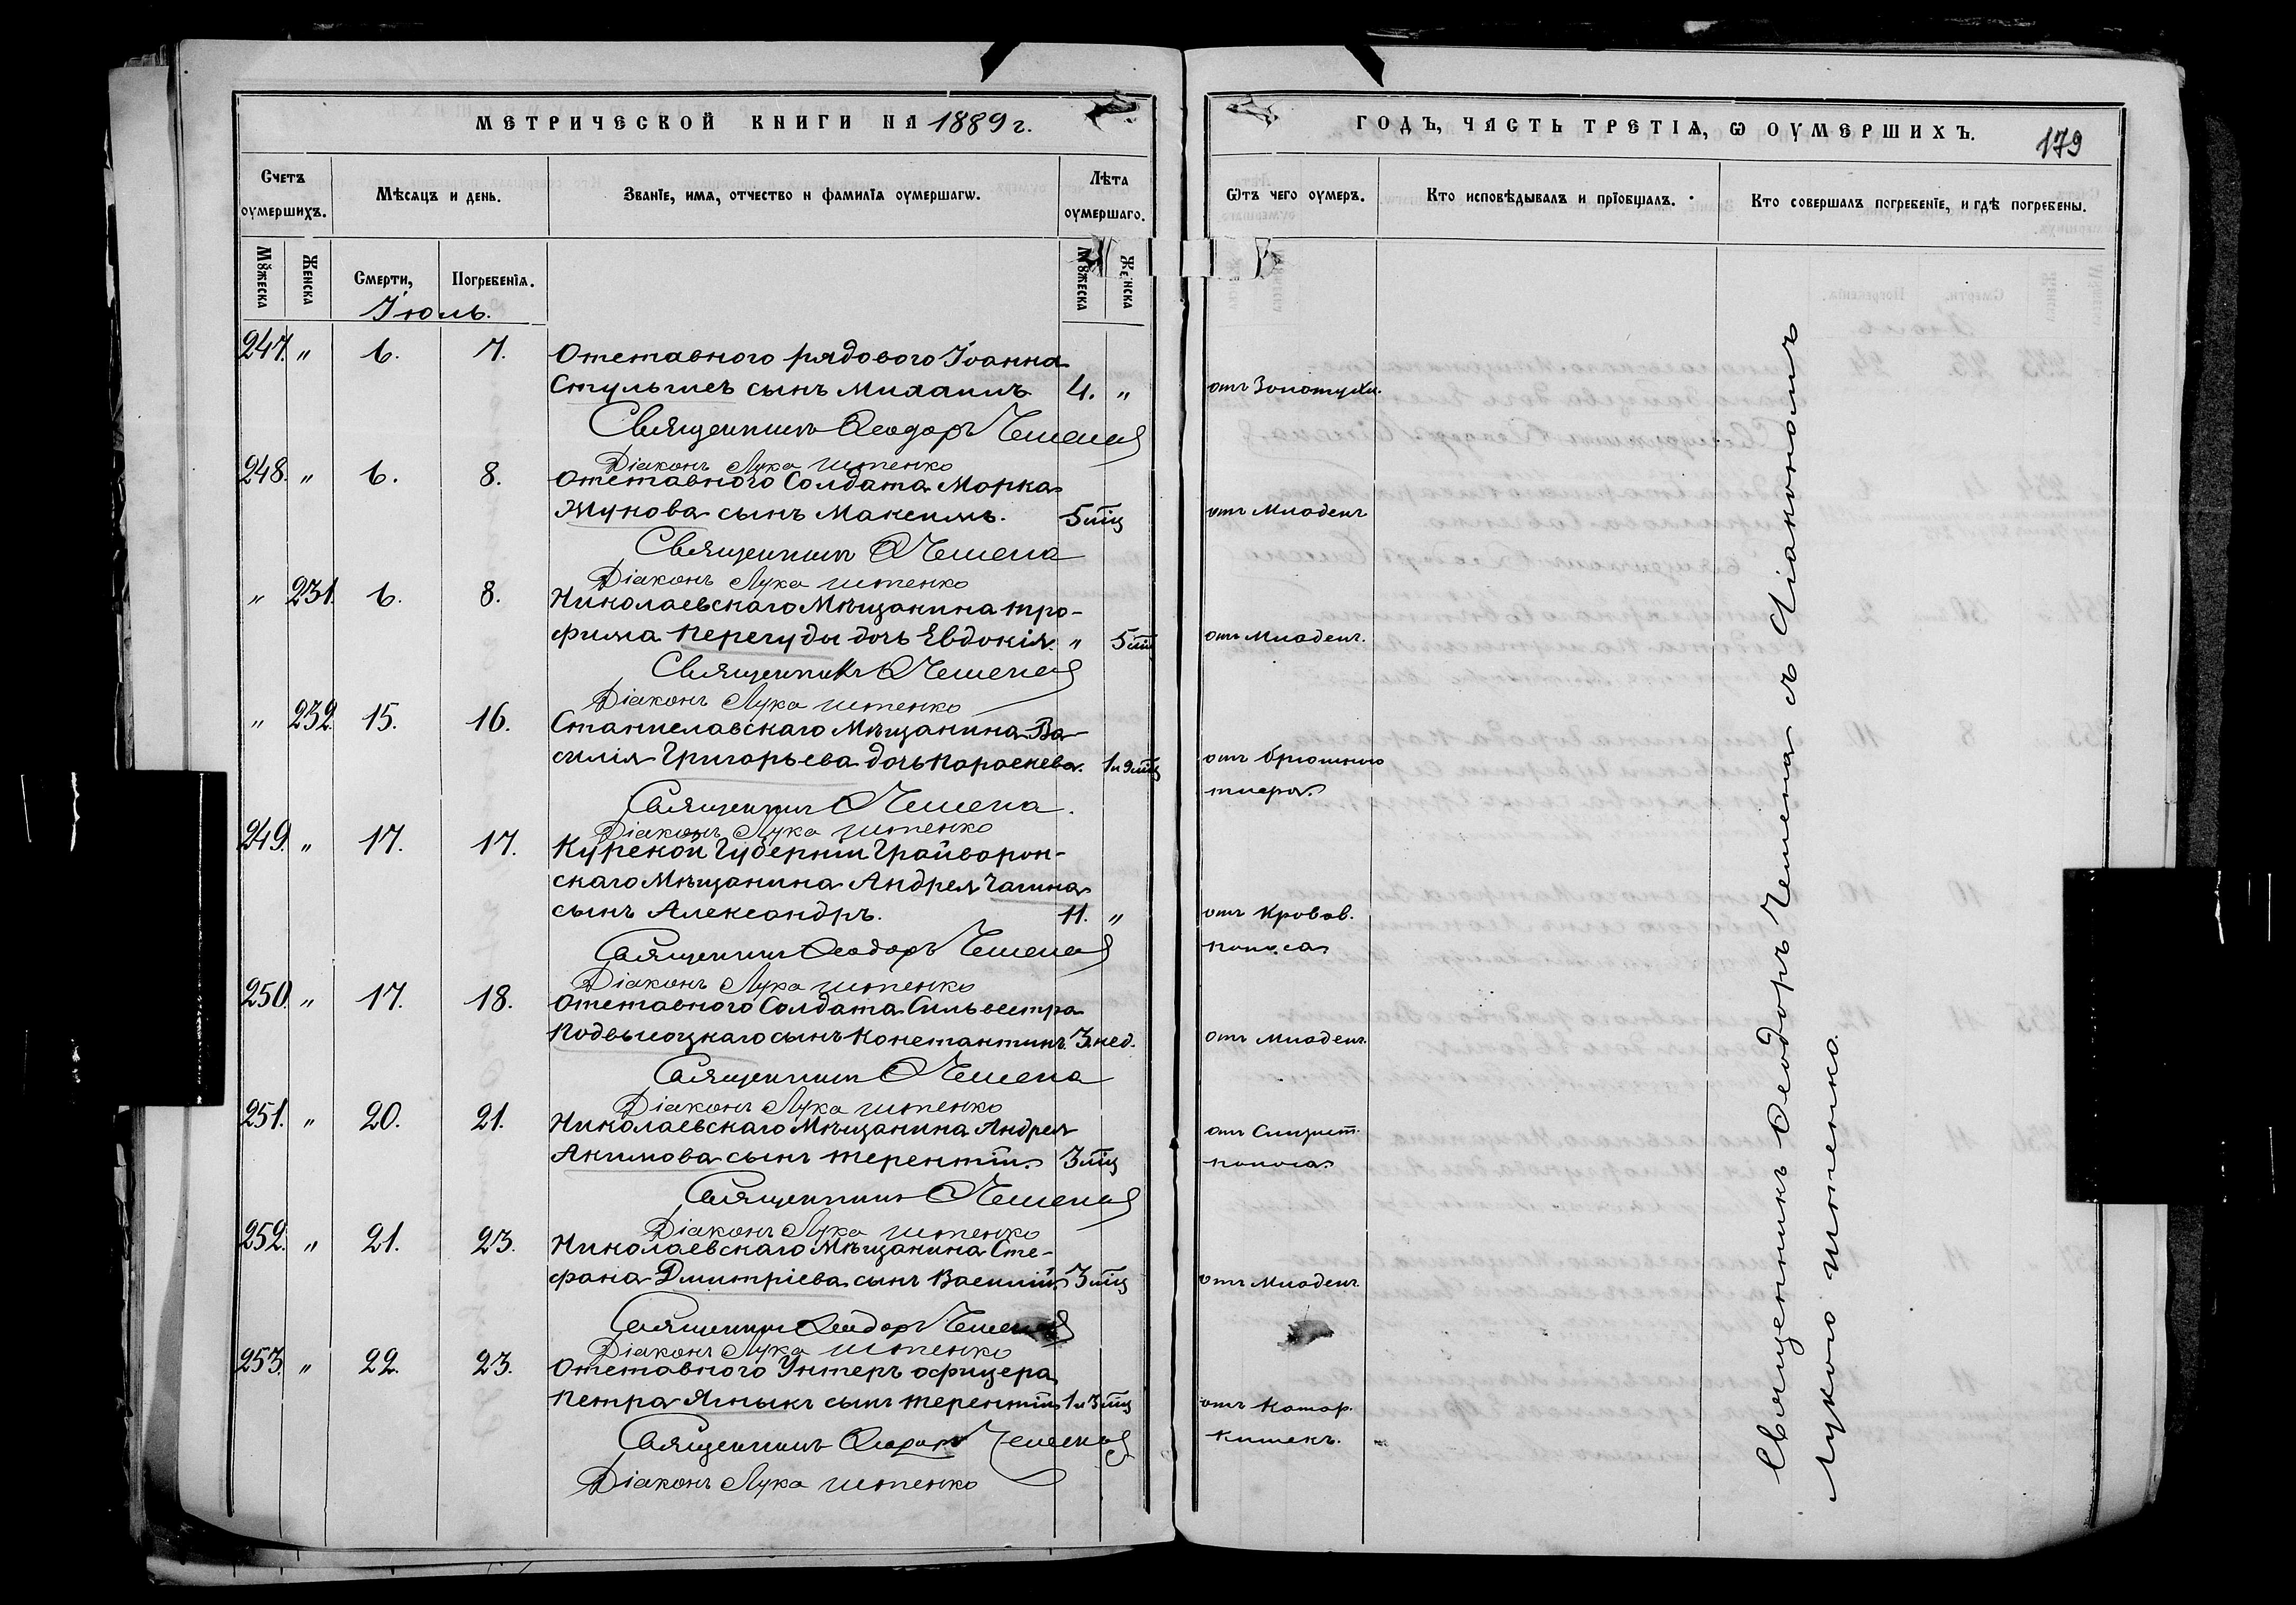 МЕТРИЧЕСКОЙ КНИГИ НА 1889 г.
Счетъ оумершихъ.
Мѣсяцъ и день.
Званіе, имя, отчество и фамилія оумершагѡ.
Лѣта оумершаго.
Мꙋжеска
Женска
Смерти,
Погребенія.
Мꙋжеска
Женска
Іюль.
247. " 6. 7. Отставного рядового Іоанна
Стульгиев сынъ Михаилъ 4. "
Священникъ Ѳеодоръ Чешена
Діаконъ Лука Штенко
248. " 6. 8. Отставного Солдата Марка
Жукова сынъ Максимъ. 5 мц
Священникъ Ѳ Чешена
Діаконъ Лука Штенко
" 231. 6. 8. Николаевскаго Мѣщанина Тро-
фима Перегуды дочь Евдокія. " 5 мц
Священникъ Ѳ Чешена
Діаконъ Лука Штенко
" 232. 15. 16. Станиславскаго Мѣщанина Ва-
силія Григорьева дочь Параскева. 1 и 9 мц
Священникъ Ѳ Чешена.
Діаконъ Лука Штенко
249. " 17. 17. Курской Губерніи Грайворон-
скаго Мѣщанина Андрея Чагина
сынъ Александръ. 11. "
Священникъ Ѳеодоръ Чешена
Діаконъ Лука Штенко
250. " 17. 18. Отставного Солдата Сильвестра
Подвысоцкаго сынъ Константинъ. 3 нед.
Священникъ Ѳ Чешена
Діаконъ Лука Штенко
251. " 20. 21. Николаевскаго Мѣщанина Андрея
Акимова сынъ Терентій. 3 мц
Священникъ Ѳ Чешена
Діаконъ Лука Штенко
252. " 21. 23. Николаевскаго Мѣщанина Сте-
фана Дмитріева сынъ Василій 3 мц
Священникъ Ѳеодоръ Чешена
Діаконъ Лука Штенко
253. " 22. 23. Отставного Унтеръ офицера
Петра Ягныкъ сынъ Терентій 1 и 3 мц
Священникъ Ѳеодоръ Чешена
Діаконъ Лука Штенко
ГОДЪ, ЧАСТЬ ТРЕТІѦ, Ѡ ОУМЕРШИХЪ.
179
Ѿтъ чего оумеръ.
Кто исповѣдывалъ и пріобщалъ.
Кто совершалъ погребеніе, и гдѣ погребены.
отъ Золотухи.
отъ Младенч
отъ Младенч.
отъ брюшного
тифа.
отъ Кровав.
поноса
отъ Младенч.
отъ Слизист.
поноса.
отъ Младенч.
отъ Катар.
кишекъ.
Священникъ Ѳеодоръ Чешена съ Діакономъ
Лукою Штенко.